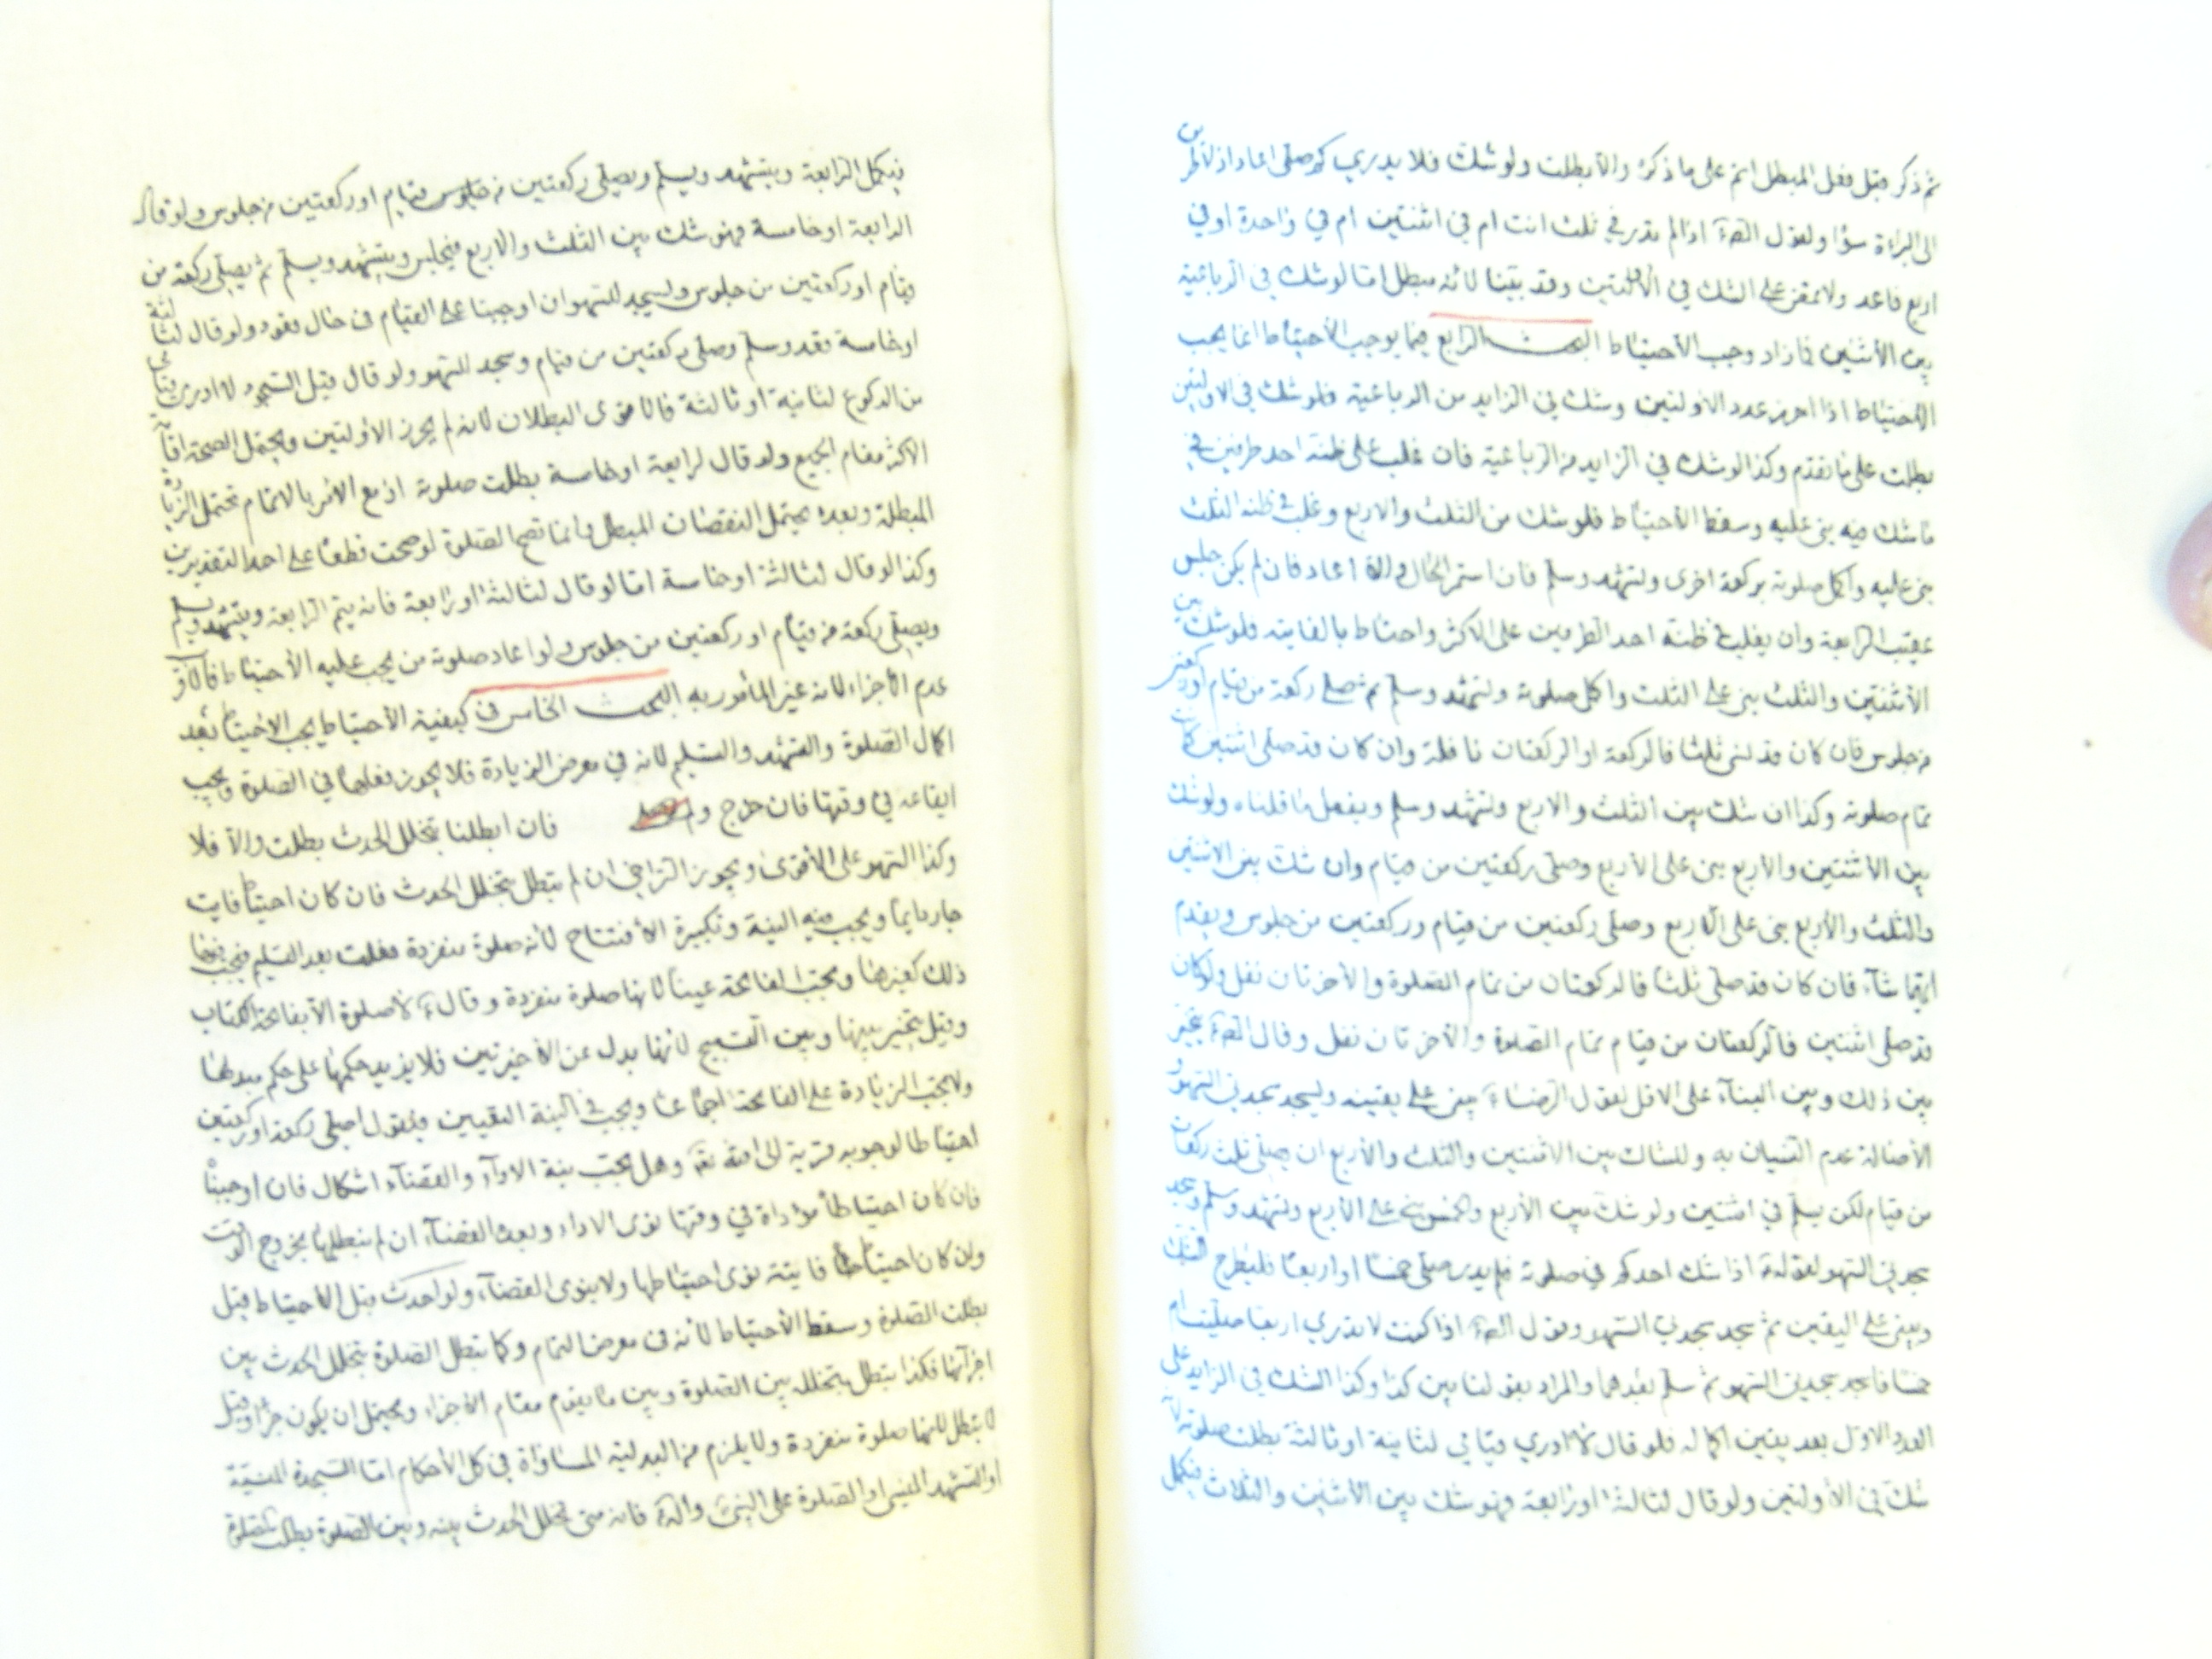 ثم ذكر قبل فعل المبطل اتم على ما ذكره والا بطلت ولو شك فلا يدري كم صلى اعاد اذ لا طريق
الى البراءة سواه ولقول الصادق اذا لم تدر في ثلث انت ام في اثنتين ام في واحدة او في
اربع فاعد ولانه في الشك في الاولتين وقد بينا انه مبطل اما لو شك في الرباعية
بين الاثنتين فما زاد وجب الاحتياط البحث الرابع فيما يوجب الاحتياط انما يجب
الاحتياط اذا احرز عدد الاولتين وشك في الزايد من الرباعية فلو شك في الاولتين
بطلت على ما تقدم وكذا لو شك في الزايد من الرباعية فان غلب على ظنه احد طرفين في
ما شك فيه بنى عليه وسقط الاحتياط فلو شك من الثلث والاربع وغلب في ظنه الثلث
بنى عليه واكمل صلوته بركعة اخرى وتشهد وسلم فان استمر الحال والا اعاد فان لم يكن جلس
عقيب الرابعة وان يغلب ظنه احد الطرفين على الاكثر واحتاط بالفايته فلو شك بين
الاثنتين والثلث بنى على الثلث واكمل صلوته وتشهد وسلم ثم صلى ركعة من قيام او ركعتين
من جلوس فان كان قد صلى ثلثا فالركعة او الركعتان نافلة وان كان قد صلى اثنتين كان
تمام صلوته وكذا ان شك بين الثلث والاربع وتشهد وسلم ويفعل ما قلناه ولو شك
بين الاثنتين والاربع بنى على الاربع وصلى ركعتين من قيام وان شك بين الاثنتين
والثلث والاربع بنى على الاربع وصلى ركعتين من قيام وركعتين من جلوس ويقدم
ايهما شاء فان كان قد صلى ثلثا فالركعتان من تمام الصلوة والاخرتان نفل ولو كان
قد صلى اثنتين فالركعتان من قيام تمام الصلوة والاخرتان نفل وقال يتخير
بين ذلك وبين البناء على الاقل لقول الرضا يبنى على يقينه ويسجد سجدتي السهو
لاصالة عدم النسيان به وللشاك بين الاثنتين والثلث والاربع ان يصلي ثلث ركعات
من قيام لكن يسلم في اثنتين ولو شك بين الاربع والخمس بنى على الاربع وتشهد وسلم وسجد
سجدتي السهو لقوله اذا شك احدكم في صلوته فلم يدر صلى خمسا او اربعا فليطرح الشك
ويبنى على اليقين ثم يسجد سجدتي السهو وقول الصادق اذا كنت لا تدري اربعا صليت ام
خمسا فاسجد سجدتي السهو ثم سلم بعدهما والمراد بقولنا بين كذا وكذا الشك في الزايد على
العدد الاول بعد يقين اكماله فلو قال لا ادري قيامي لثانية او ثالثة بطلت صلوته لانه
شك في الاولتين ولو قال لثالثة او رابعة فهو شك بين الاثنتين والثلاث فيكمل
فيكمل الرابعة ويتشهد ويسلم ويصلي ركعتين من قيام او ركعتين من جلوس ولو قال
الرابعة او خامسة فهو شك بين الثلث والاربع فيجلس ويتشهد ويسلم ثم يصلى ركعة من
قيام او ركعتين من جلوس ويسجد للسهو ان اوجبنا على القيام في حال قعود ولو قال لثالثة
او خامسة قعد وسلم وصلى ركعتين من قيام وسجد للسهو ولو قال قبل السجود لا ادري قيامى
من الركوع لثانية او ثالثة فالاقوى البطلان لانه لم يحرز الاولتين ويحتمل الصحة اقامة
الاكثر مقام الجميع ولو قال لرابعة او خامسة بطلت صلوته اذ مع الامر بالاتمام تحتمل الزيادة
المبطلة وبعده يحتمل النقصان المبطل وانما تصح الصلوة لو صحت قطعا على احد التقديرين
وكذا لو قال لثالثة او خامسة اما لو قال لثالثة او رابعة فانه يتم الرابعة ويتشهد ويسلم
ويصلى ركعة من قيام او ركعتين من جلوس ولو اعاد صلوته من يجب عليه الاحتياط فالاقوى
عدم الاجزاء لانه غير المأمور به البحث الخامس في كيفية الاحتياط يجب الاحتياط بعد
اكمال الصلوة والتشهد والتسليم لانه في معرض الزيادة فلا يجوز فعلها في الصلوة ويجب
ايقاعه في وقتها فان خرج و فان ابطلنا بتخلل الحدث بطلت والا فلا
وكذا السهو على الاقوى ويجوز التراخي ان لم يبطل بتخلل الحدث فان كان احتياط فايت
جاز دايما ويجب فيه النية وتكبيرة الافتتاح لانه صلوة منفردة فعلت بعد التسليم فيجب فيها
ذلك كغيرها ويجب الفاتحة عينا لانها صلوة منفردة وقال لا صلوة الا بفاتحة الكتاب
وقيل يتخير بينها وبين التسبيح لانها بدل عن الاخيرتين فلا يزيد حكمها على حكم مبدلها
ولا يجب الزيادة على الفاتحة اجماعا ويجب في النية التعيين فيقول اصلى ركعة او ركعتين
احتياطا لوجوبه قربة الى الله وهل يجب نية الاداء والقضاء اشكال فان اوجبنا
فان كان احتياط مؤداة في وقتها نوى الاداء وبعده القضاء ان لم نبطلها بخروج الوقت
وان كان احتياط فايتة نوى احتياطها ولا ينوى القضاء ولو احدث قبل الاحتياط قيل
بطلت الصلوة وسقط الاحتياط لانه في معرض التمام وكما تبطل الصلوة بتخلل الحدث بين
اجزائها فكذا تبطل بتخلله بين الصلوة وبين ما يقوم مقام الاجزاء ويحتمل ان يكون جزءا وقيل
لا تبطل لانها صلوة منفردة ولا يلزم من البدلية المساواة في كل الاحكام اما السجدة المنسية
او التشهد المنسى او الصلوة على النبي وآله فانه متى تخلل الحدث بينه وبين الصلوة بطلت الصلوة